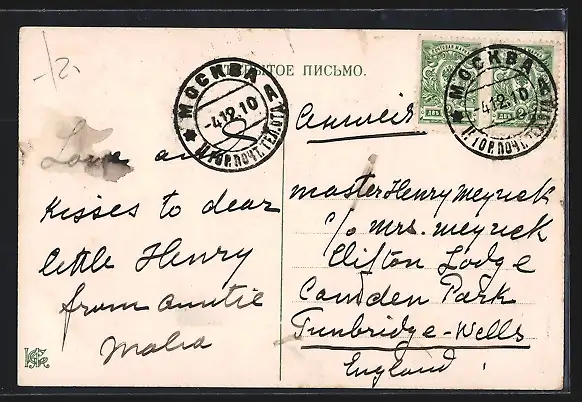 -/2.
ОТКРЫТОЕ ПИСЬМО.
МОСКВА
-4.12.10
8
II ГОР. ПОЧТ. ТЕЛ. ОТД.
МОСКВА
-4.12.10
II ГОР. ПОЧТ. ТЕЛ. ОТД.
Love and
Kisses to dear
little Henry
from auntie
Англия
Master Henry Meyrick
c/o Mrs. Meyrick
Clifton Lodge
Camden Park
Tunbridge-Wells
England.